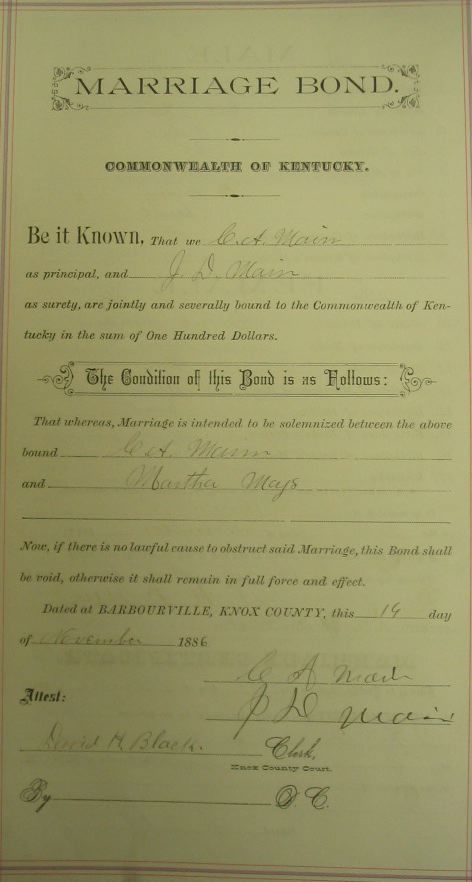 MARRIAGE BOND.
COMMONWEALTH OF KENTUCKY.
Be it Known, That we C. A. Main
as principal, and J. D. Main
as surety, are jointly and severally bound to the Commonwealth of Ken-
tucky in the sum of One Hundred Dollars.
The Condition of this Bond is as Follows:
That whereas, Marriage is intended to be solemnized between the above
bound C. A. Main
and Martha Mays
Now, if there is no lawful cause to obstruct said Marriage, this Bond shall
be void, otherwise it shall remain in full force and effect.
Dated at BARBOURVILLE, KNOX COUNTY, this 14 day
of November 1886
C A Main
Attest: J D Main
David H. Black. Clerk,
Knox County Court.
By D. C.